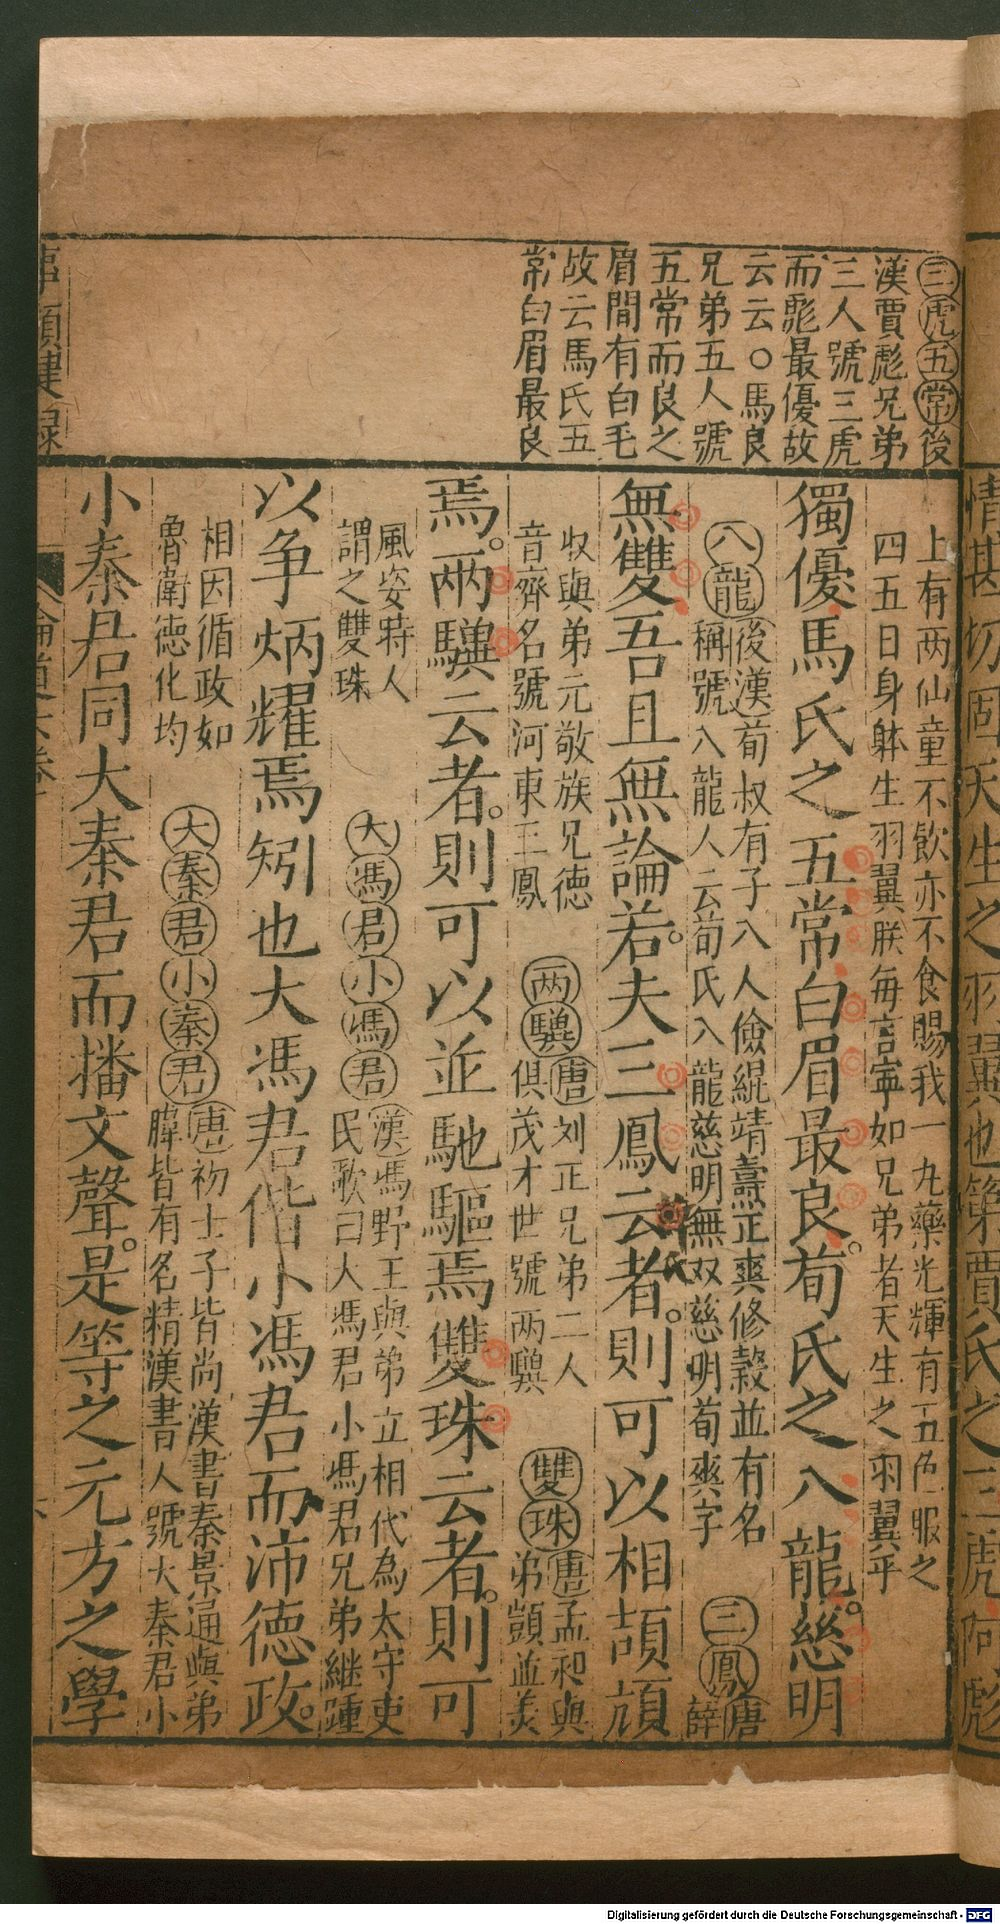 三虎五常後
漢賈彪兄弟
三人號三虎
而彪最優故
云云○馬良
兄弟五人號
五常而良之
眉間有白毛
故云馬氏五
常白眉最良
上有两仙童不飲亦不食賜我一九藥光輝有五色服之
四五日身躰生羽翼朕每言寜如兄弟者天生之羽翼乎
獨優馬氏之五常白眉最良荀氏之八龍慈明
八龍後漢荀叔有子八人儉緄靖燾汪爽修敦並有名
稱號八龍人云荀氏八龍慈明無双慈明荀爽字
三鳳唐
薛
無雙吾且無論若夫三鳳云者則可以相頡頏
收與弟元敬族兄德
音齊名號河東三鳳
两驥唐刘正兄弟二人
俱茂才世號两驥
雙珠唐孟和與
弟顗並美
焉兩驥云者則可以並馳驅焉雙珠云者則可
風姿特人
謂之雙珠
大馮君小馮君漢馮野王與弟立相代為太守吏
民歌曰大馮君小馮君兄弟継踵
以争炳耀焉矧也大馮君偕小馮君而沛德政
相因循政如
魯衛德化均
大秦君小秦君唐初士子皆尚漢書秦景通與弟
暐皆有名精漢書人號大秦君小
小秦君同大秦君而播文聲是等之元方之學
Digitalisierung gefördert durch die Deutsche Forschungsgemeinschaft - DFG